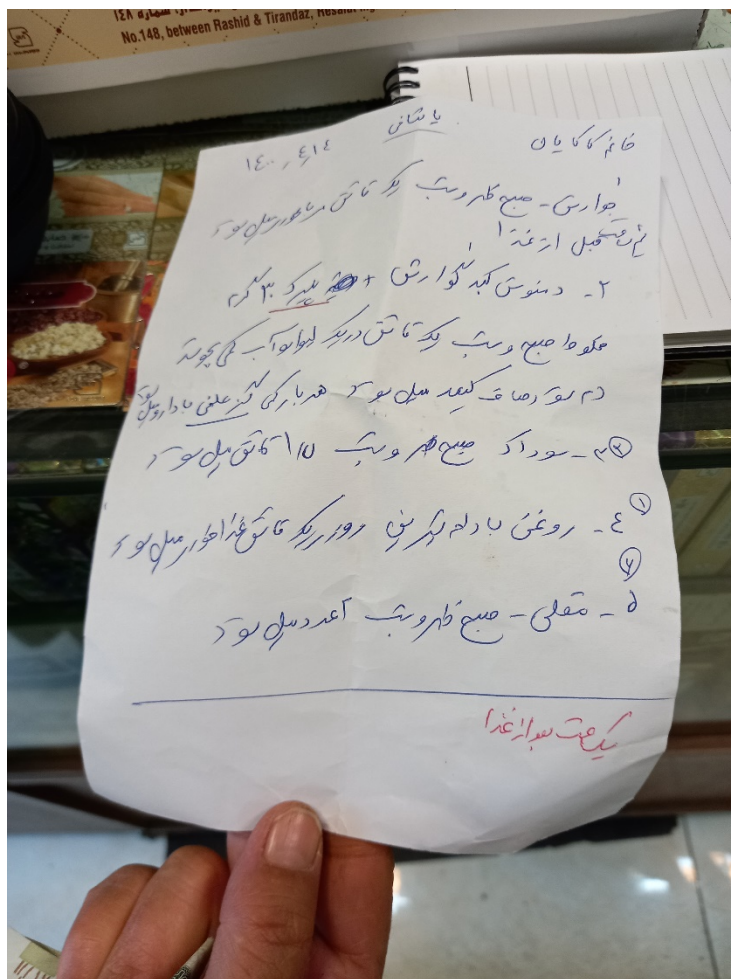 شماره ۱۴۸
No.148, between Rashid & Tirandaz, Resalat
یا شافی
خانم کاکایان
۱۴۰۰٫۴٫۱۴
۱ جوارش - صبح ظهر و شب یک قاشق مرباخوری میل شود
نیم ساعت قبل از غذا
۲- دمنوش کبد گوارش + ۳۰ گرم
مخلوط صبح و شب یک قاشق در یک لیوان آب کمی جوشیده
دم شود صاف کنید میل شود هر بار کمی گز علفی با دارو میل شود
۳- سوداک صبح و شب ۱/۵ قاشق میل شود ②
۴- روغن بادام شیرین روزی یک قاشق غذاخوری میل شود ①
۵- مقلی - صبح ظهر و شب ۲عدد میل شود ②
یک ساعت بعد از غذا